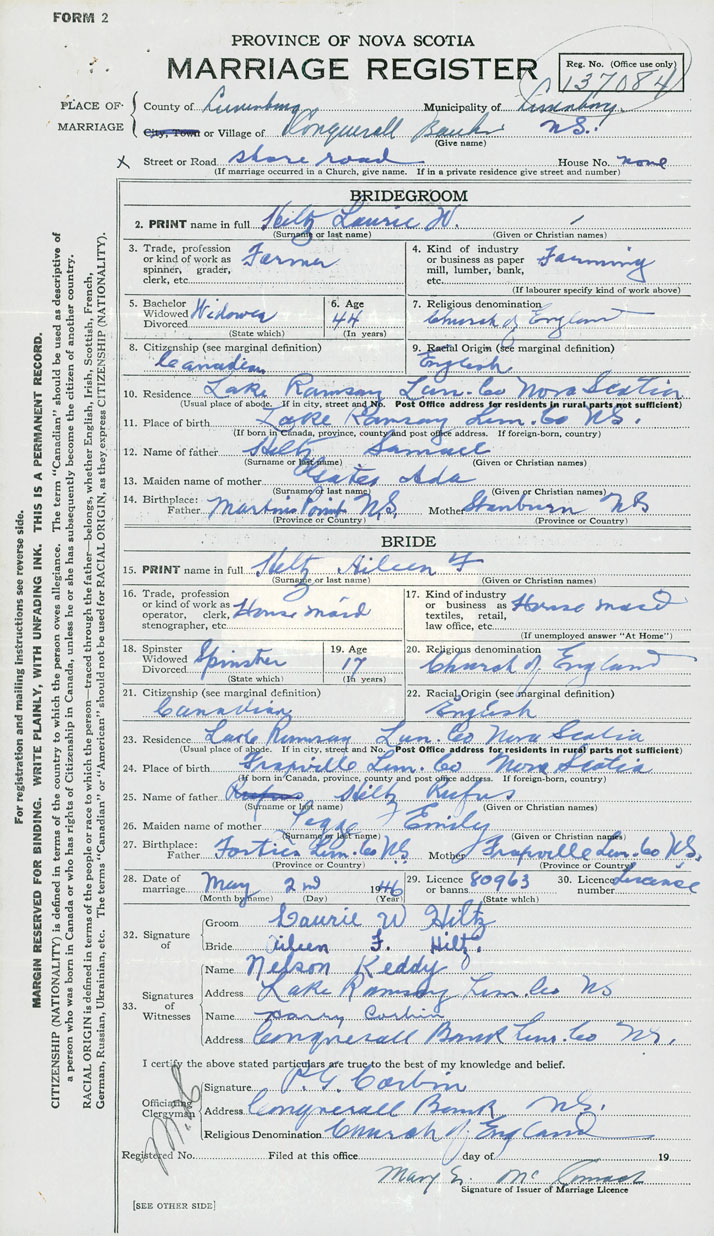 FORM 2
PROVINCE OF NOVA SCOTIA
MARRIAGE REGISTER
Reg. No. (Office use only)
137084
PLACE OF MARRIAGE
County of Lunenburg Municipality of Lunenburg
City, Town or Village of Conquerall Bank N.S.
(Give name)
x Street or Road shore road House No. none
(If marriage occurred in a Church, give name. If in a private residence give street and number)
BRIDEGROOM
2. PRINT name in full Hiltz Laurie W.
(Surname or last name) (Given or Christian names)
3. Trade, profession or kind of work as spinner, grader, clerk, etc. Farmer
4. Kind of industry or business as paper mill, lumber, bank, etc. Farming
(If labourer specify kind of work above)
5. Bachelor Widowed Divorced Widower
(State which)
6. Age 44
(In years)
7. Religious denomination
Church of England
8. Citizenship (see marginal definition)
Canadian
9. Racial Origin (see marginal definition)
English
10. Residence Lake Ramsay Lun. Co Nova Scotia
(Usual place of abode. If in city, street and No. Post Office address for residents in rural parts not sufficient)
11. Place of birth Lake Ramsay Lun. Co NS.
(If born in Canada, province, county and post office address. If foreign-born, country)
12. Name of father Hiltz Samuel
(Surname or last name) (Given or Christian names)
13. Maiden name of mother Ada
(Surname or last name) (Given or Christian names)
14. Birthplace: Father Martins Point N.S. Mother Stanburn NS
(Province or Country) (Province or Country)
BRIDE
15. PRINT name in full Hiltz Aileen F
(Surname or last name) (Given or Christian names)
16. Trade, profession or kind of work as operator, clerk, stenographer, etc. House maid
17. Kind of industry or business as textiles, retail, law office, etc. House maid
(If unemployed answer "At Home")
18. Spinster Widowed Divorced Spinster
(State which)
19. Age 17
(In years)
20. Religious denomination
Church of England
21. Citizenship (see marginal definition)
Canadian
22. Racial Origin (see marginal definition)
English
23. Residence Lake Ramsay Lun. Co Nova Scotia
(Usual place of abode. If in city, street and No. Post Office address for residents in rural parts not sufficient)
24. Place of birth Grapville Lun. Co Nova Scotia
(If born in Canada, province, county and post office address. If foreign-born, country)
25. Name of father Rufus Hiltz Rufus
(Surname or last name) (Given or Christian names)
26. Maiden name of mother Legge Emily
(Surname or last name) (Given or Christian names)
27. Birthplace: Father Forties Lun. Co NS. Mother Grapville Lun. Co NS.
(Province or Country) (Province or Country)
28. Date of marriage May 2nd 1946
(Month by name) (Day) (Year)
29. Licence or banns 80963
(State which)
30. Licence number License
32. Signature of
Groom Laurie W Hiltz
Bride Aileen F. Hiltz.
33. Signatures of Witnesses
Name Nelson Keddy
Address Lake Ramsay Lun. Co NS
Name Corbin
Address Conquerall Bank Lun. Co NS.
I certify the above stated particulars are true to the best of my knowledge and belief.
Officiating Clergyman
Signature P. G. Corbin
Address Conquerall Bank NS.
Religious Denomination Church of England
Registered No. Filed at this office day of 19
Mary E.
Signature of Issuer of Marriage Licence
[SEE OTHER SIDE]
For registration and mailing instructions see reverse side.
MARGIN RESERVED FOR BINDING. WRITE PLAINLY, WITH UNFADING INK. THIS IS A PERMANENT RECORD.
CITIZENSHIP (NATIONALITY) is defined in terms of the country to which the person owes allegiance. The term "Canadian" should be used as descriptive of
a person who was born in Canada or who has rights of Citizenship in Canada, unless he or she has subsequently become the citizen of another country.
RACIAL ORIGIN is defined in terms of the people or race to which the person—traced through the father—belongs, whether English, Irish, Scottish, French,
German, Russian, Ukrainian, etc. The terms "Canadian" or "American" should not be used for RACIAL ORIGIN, as they express CITIZENSHIP (NATIONALITY).